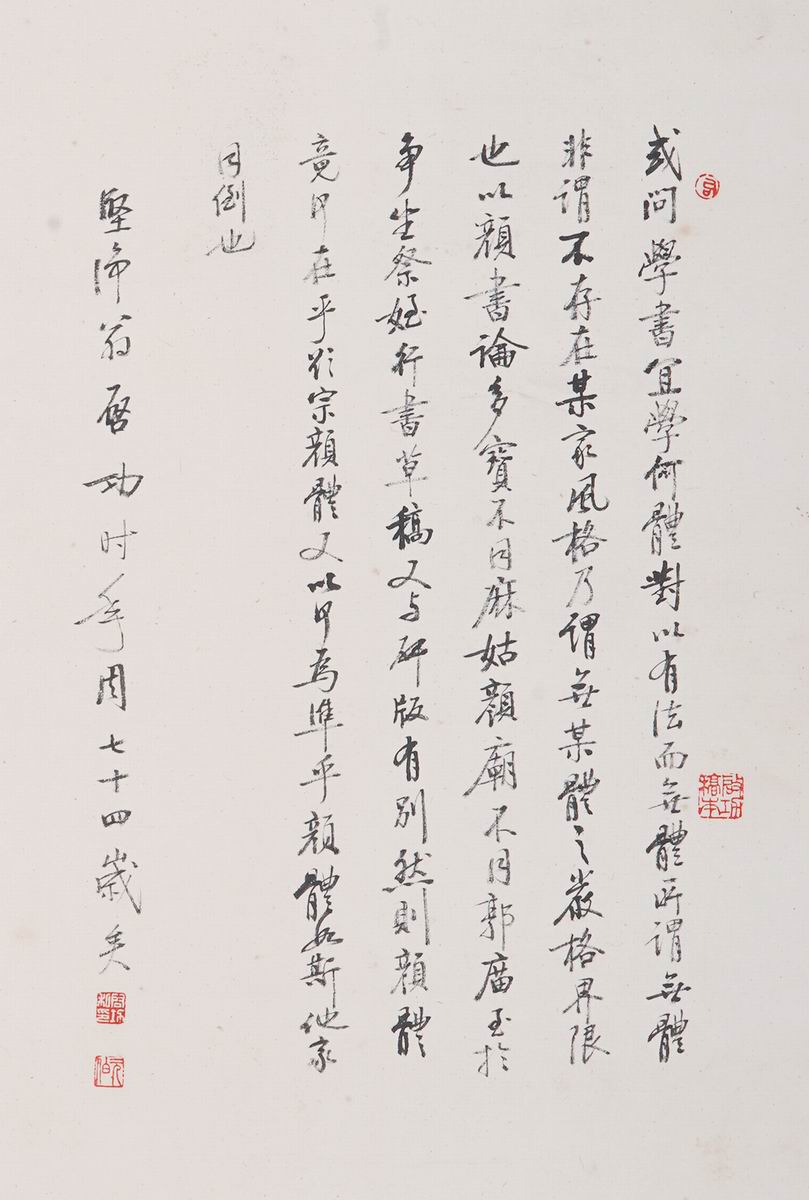 或问學書宜學何體對以有法而無體所谓無體
非谓不存在某家風格乃谓無某體之嚴格界限
也以顔書論多寳不同麻姑顔廟不同郭廟至於
争坐祭姪行書草稿又与碑版有别然則顔體
竟何在乎欲宗顔體又以何為準乎顔體如斯他家
同例也
堅净翁启功时年周七十四歲矣
啟功